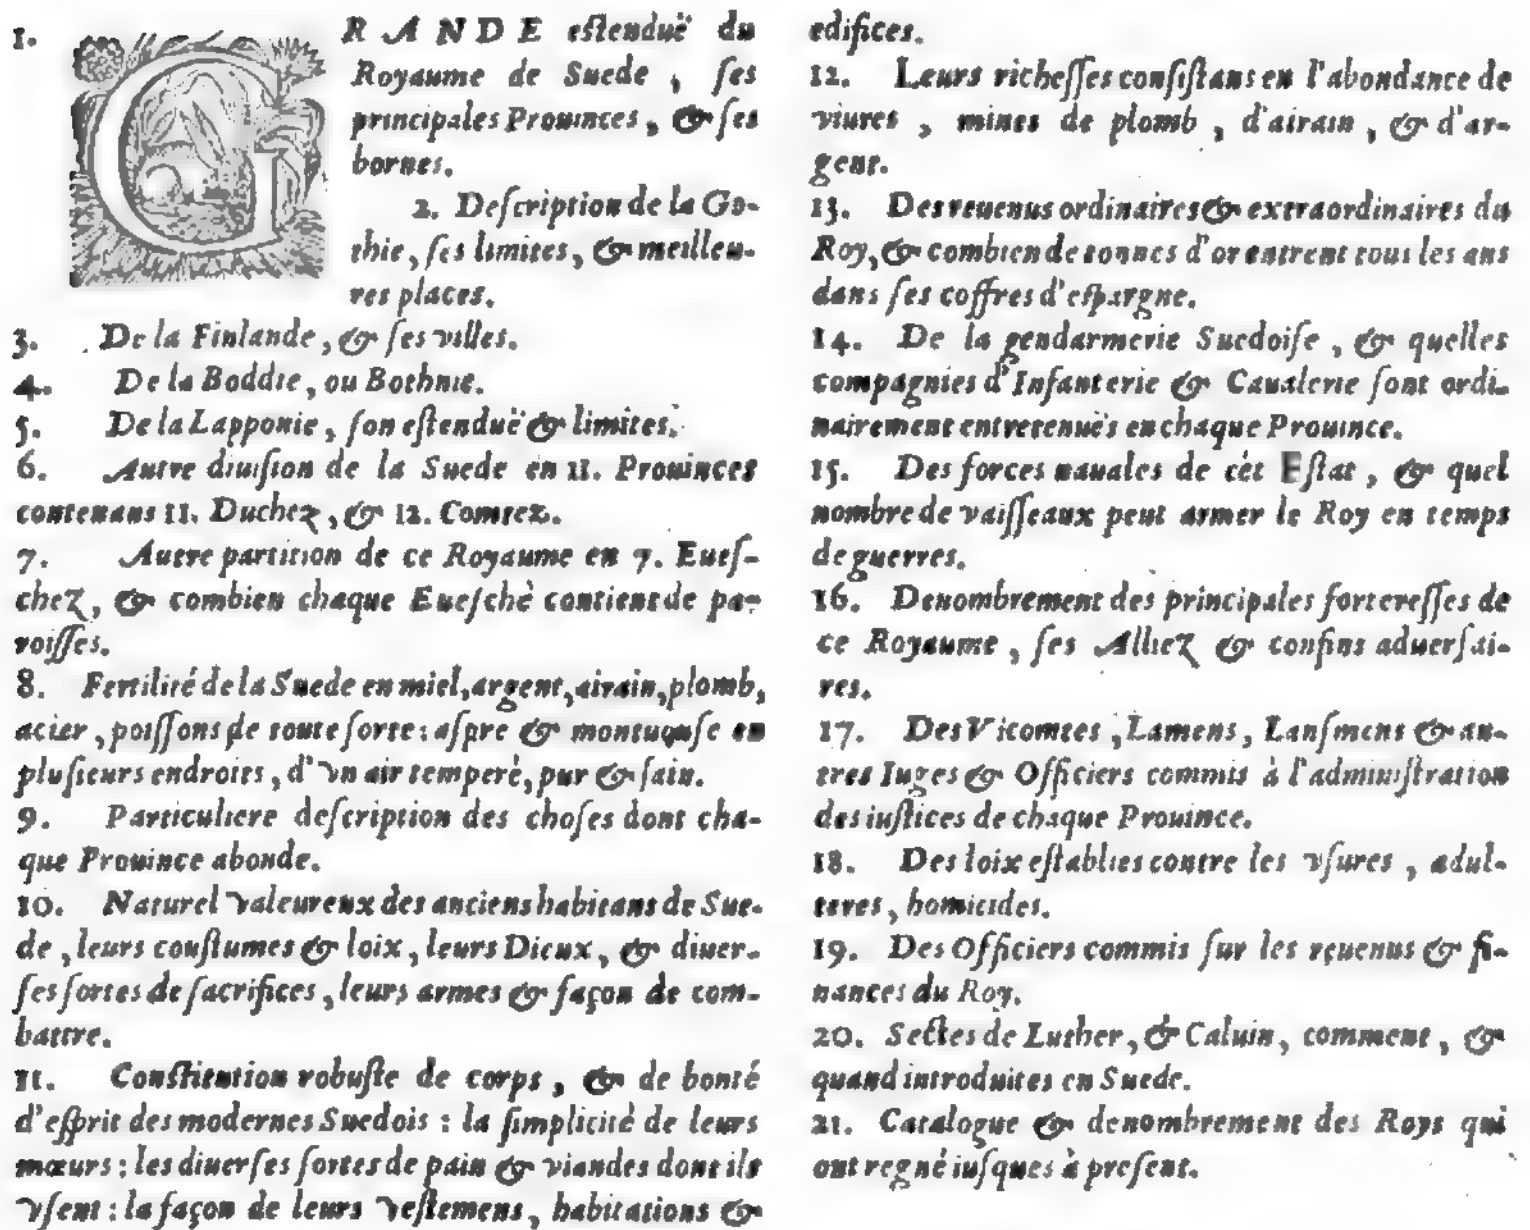 1. GRANDE eſtenduë du
Royaume de Suede, ſes
principales Prouinces, & ſes
bornes.
2. Deſcription de la Go-
thie, ſes limites, & meilleu-
res places.
3. De la Finlande, & ſes villes.
4. De la Boddie, ou Bothnie.
5. De la Lapponie, ſon eſtenduë & limites.
6. Autre diuiſion de la Suede en 11. Prouinces
contenans 11. Duchez, & 12. Comtez.
7. Autre partition de ce Royaume en 7. Eueſ-
chez, & combien chaque Eueſché contient de pa-
roiſſes.
8. Fertilité de la Suede en miel, argent, airain, plomb,
acier, poiſſons de toute ſorte: aſpre & montuquſe en
pluſieurs endroits, d'vn air temperé, pur & ſain.
9. Particuliere deſcription des choſes dont cha-
que Prouince abonde.
10. Naturel valeureux des anciens habitans de Sue-
de, leurs couſtumes & loix, leurs Dieux, & diuer-
ſes ſortes de ſacrifices, leurs armes & façon de com-
battre.
11. Conſtitution robuſte de corps, & de bonté
d'eſprit des modernes Suedois: la ſimplicité de leurs
mœurs: les diuerſes ſortes de pain & viandes dont ils
vſent: la façon de leurs veſtemens, habitations &
edifices.
12. Leurs richeſſes conſiſtans en l'abondance de
viures, mines de plomb, d'airain, & d'ar-
gent.
13. Des reuenus ordinaires & extraordinaires du
Roy, & combien de tonnes d'or entrent tous les ans
dans ſes coffres d'eſpargne.
14. De la gendarmerie Suedoiſe, & quelles
compagnies d'Infanterie & Caualerie ſont ordi-
nairement entretenuës en chaque Prouince.
15. Des forces nauales de cét Eſtat, & quel
nombre de vaiſſeaux peut armer le Roy en temps
de guerres.
16. Denombrement des principales fortereſſes de
ce Royaume, ſes Alliez & confins aduerſai-
res.
17. Des Vicomtes, Lamens, Lanſmens & au-
tres Iuges & Officiers commis à l'adminiſtration
des iuſtices de chaque Prouince.
18. Des loix eſtablies contre les vſures, adul-
teres, homicides.
19. Des Officiers commis ſur les reuenus & fi-
nances du Roy.
20. Sectes de Luther, & Caluin, comment, &
quand introduites en Suede.
21. Catalogue & denombrement des Roys qui
ont regné iuſques à preſent.